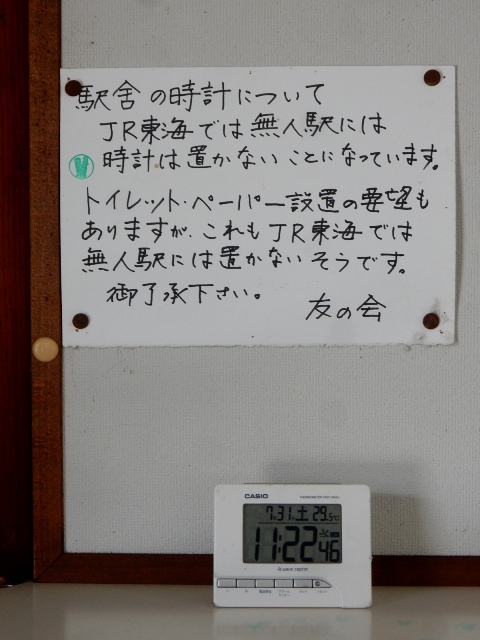 駅舎の時計について
JR東海では無人駅には
時計は置かないことになっています。
トイレット・ペーパー設置の要望も
ありますが、これもJR東海では
無人駅には置かないそうです。
御了承下さい。 友の会
CASIO
7月31日土 29.5℃
11:22 46
wave ceptor